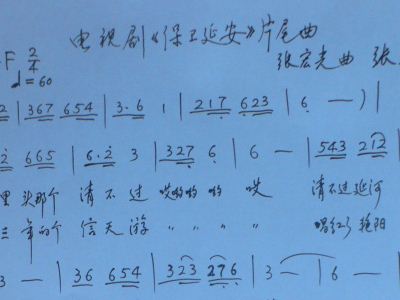 电视剧《保卫延安》片尾曲
F 2/4
张宏光曲 张
d=60
2 | 367 654 | 3·6 1 | 217 623 | 6 — ) |
2 665 | 6·2 3 | 327 6 | 6 — | 543 212
里 头那个 清 不 过 哎哟哟 哟 哎 清不过延河
三 年的个 信 天 游 " " " " 唱红了艳阳
3 — | 36 654 | 323 276 | 3 — | 6 — |